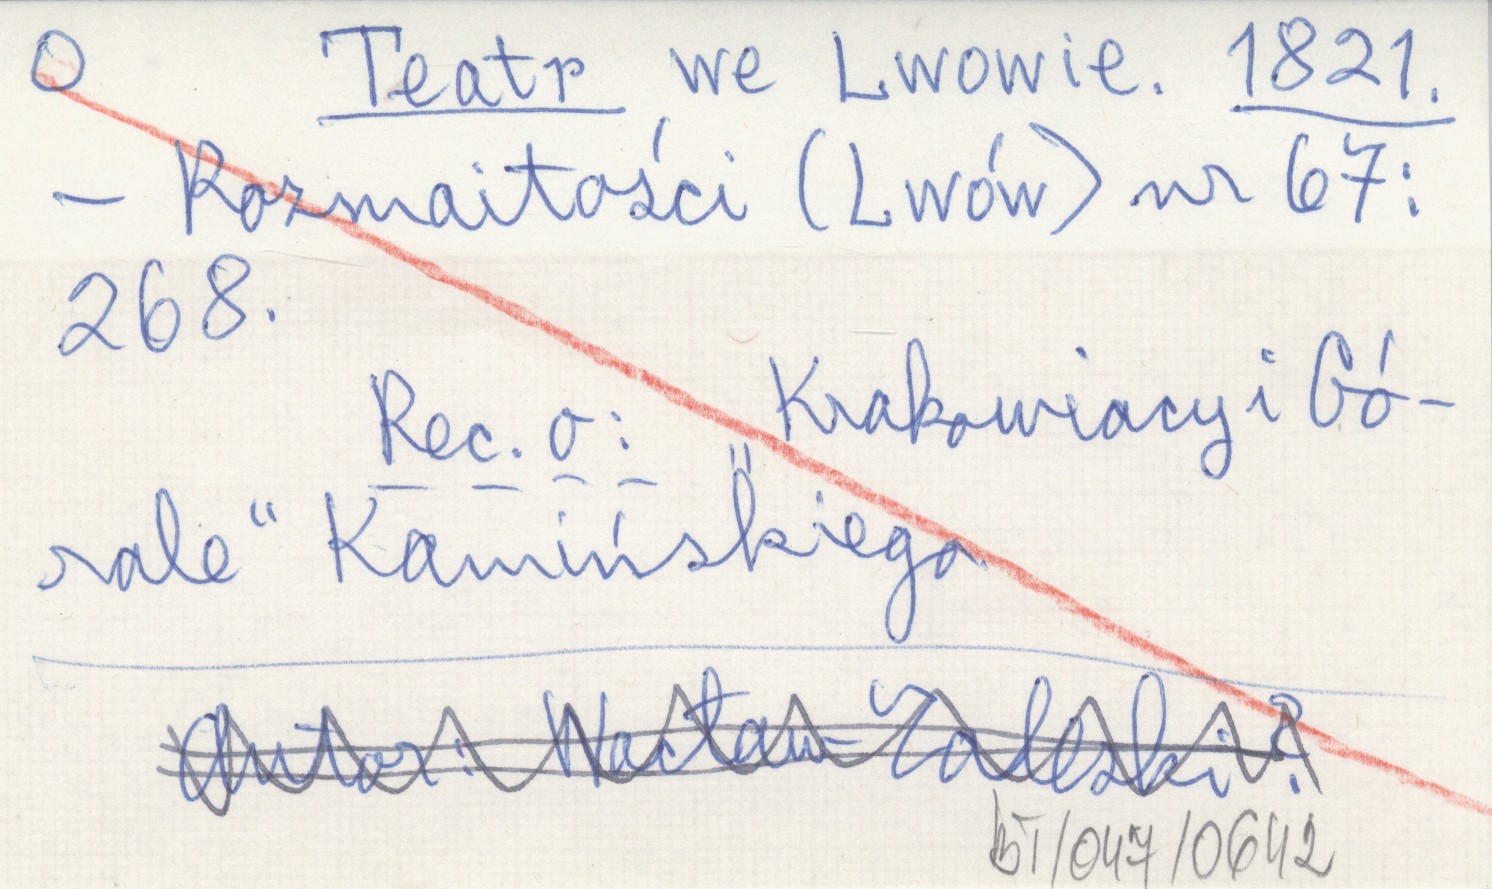 O Teatr we Lwowie. 1821.
– Rozmaitości (Lwów) nr 67:
268.
Rec. o: „Krakowiacy i Gó-
rale“ Kamińskiego.
Autor: Wacław Zaleski?
BT/047/0642